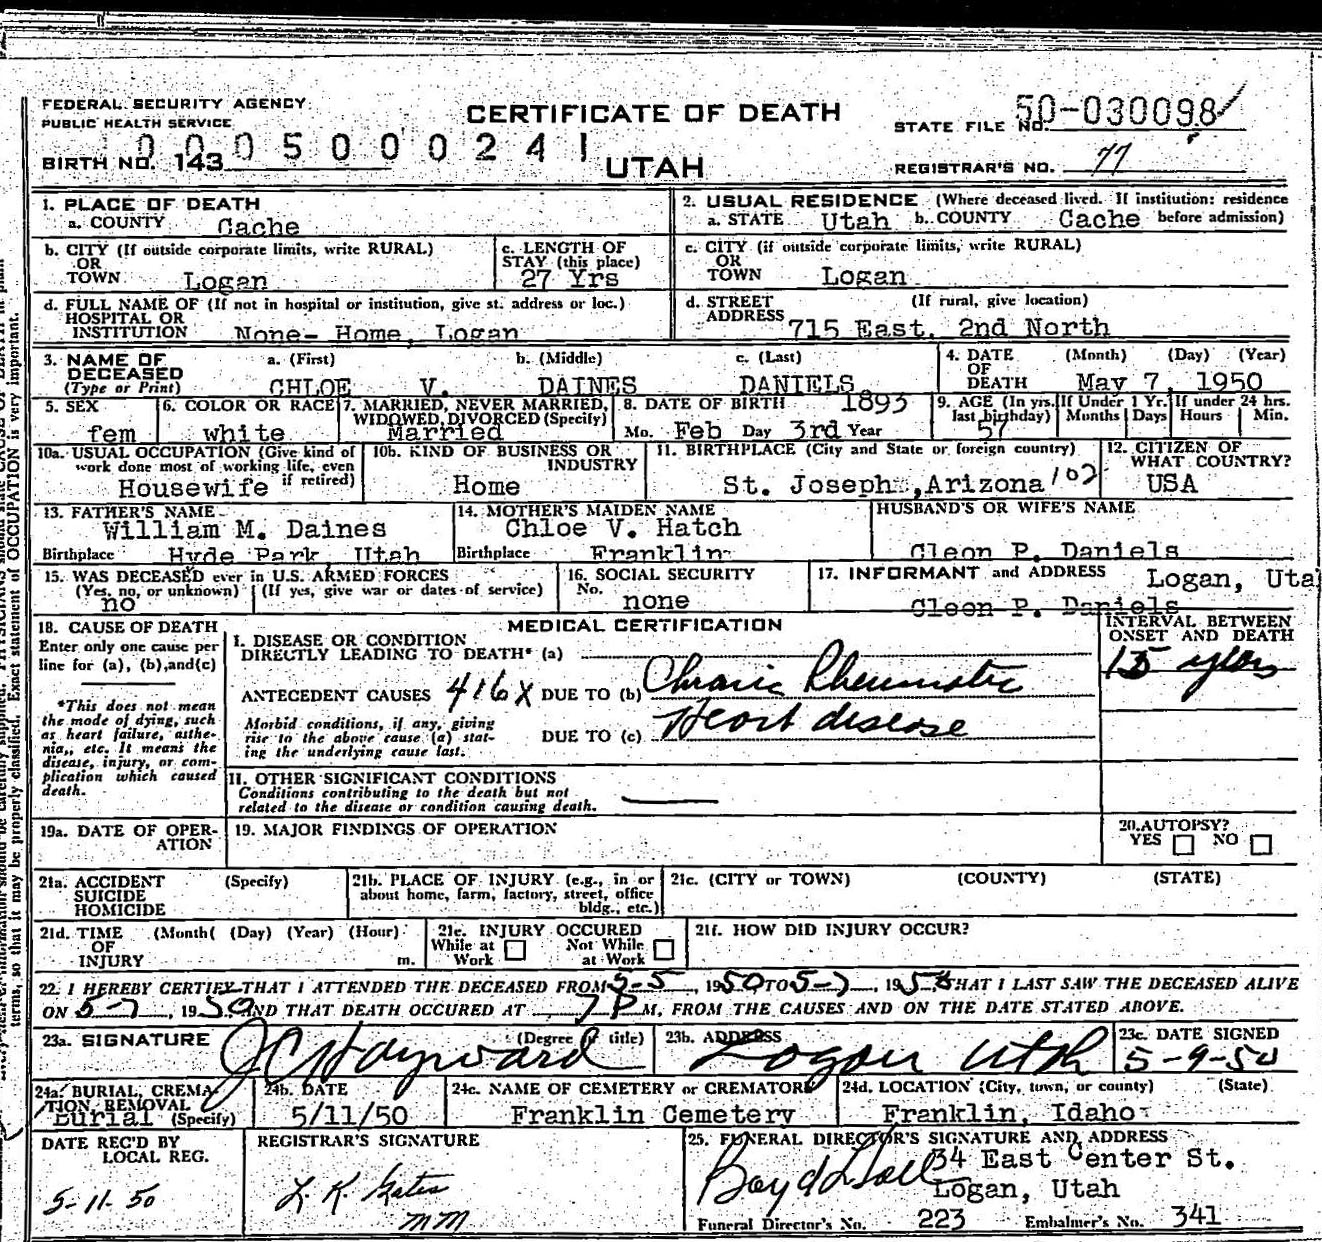 FEDERAL SECURITY AGENCY
PUBLIC HEALTH SERVICE
CERTIFICATE OF DEATH
STATE FILE NO. 50-030098
0005000241
BIRTH NO. 143
UTAH
REGISTRAR'S NO. 77
1. PLACE OF DEATH
a. COUNTY Cache
2. USUAL RESIDENCE (Where deceased lived. If institution: residence before admission)
a. STATE Utah b. COUNTY Cache
b. CITY (If outside corporate limits, write RURAL)
OR
TOWN Logan
c. LENGTH OF
STAY (this place)
27 Yrs
c. CITY (if outside corporate limits, write RURAL)
OR
TOWN Logan
d. FULL NAME OF (If not in hospital or institution, give st. address or loc.)
HOSPITAL OR
INSTITUTION None- Home, Logan
d. STREET (If rural, give location)
ADDRESS 715 East, 2nd North
3. NAME OF a. (First) b. (Middle) c. (Last)
DECEASED
(Type or Print) CHLOE V. DAINES DANIELS
4. DATE (Month) (Day) (Year)
OF
DEATH May 7, 1950
5. SEX
fem
6. COLOR OR RACE
white
7. MARRIED, NEVER MARRIED,
WIDOWED, DIVORCED (Specify)
Married
8. DATE OF BIRTH 1893
Mo. Feb Day 3rd Year
9. AGE (In yrs. last birthday)
57
If Under 1 Yr.
Months Days
If under 24 hrs.
Hours Min.
10a. USUAL OCCUPATION (Give kind of
work done most of working life, even
if retired)
Housewife
10b. KIND OF BUSINESS OR
INDUSTRY
Home
11. BIRTHPLACE (City and State or foreign country)
St. Joseph ,Arizona 102
12. CITIZEN OF
WHAT COUNTRY?
USA
13. FATHER'S NAME
William M. Daines
Birthplace Hyde Park, Utah
14. MOTHER'S MAIDEN NAME
Chloe V. Hatch
Birthplace Franklin
HUSBAND'S OR WIFE'S NAME
Cleon P. Daniels
15. WAS DECEASED ever in U.S. ARMED FORCES
(Yes, no, or unknown) (If yes, give war or dates of service)
no
16. SOCIAL SECURITY
No.
none
17. INFORMANT and ADDRESS Logan, Uta
Cleon P. Daniels
18. CAUSE OF DEATH
Enter only one cause per
line for (a), (b), and (c)
*This does not mean
the mode of dying, such
as heart failure, asthe-
nia,, etc. It means the
disease, injury, or com-
plication which caused
death.
MEDICAL CERTIFICATION
INTERVAL BETWEEN
ONSET AND DEATH
I. DISEASE OR CONDITION
DIRECTLY LEADING TO DEATH* (a)
15 years
ANTECEDENT CAUSES 416X DUE TO (b) Chronic Rheumatic
Morbid conditions, if any, giving
rise to the above cause (a) stat-
ing the underlying cause last.
DUE TO (c) Heart disease
II. OTHER SIGNIFICANT CONDITIONS
Conditions contributing to the death but not
related to the disease or condition causing death.
19a. DATE OF OPER-
ATION
19. MAJOR FINDINGS OF OPERATION
20. AUTOPSY?
YES NO
21a. ACCIDENT (Specify)
SUICIDE
HOMICIDE
21b. PLACE OF INJURY (e.g., in or
about home, farm, factory, street, office
bldg., etc.)
21c. (CITY or TOWN) (COUNTY) (STATE)
21d. TIME (Month( (Day) (Year) (Hour)
OF
INJURY m.
21e. INJURY OCCURED
While at Work Not While at Work
21f. HOW DID INJURY OCCUR?
22. I HEREBY CERTIFY THAT I ATTENDED THE DECEASED FROM 5-5, 1950 TO 5-7, 1950 THAT I LAST SAW THE DECEASED ALIVE
ON 5-7, 1950 AND THAT DEATH OCCURED AT 7 P M, FROM THE CAUSES AND ON THE DATE STATED ABOVE.
23a. SIGNATURE (Degree or title)
J C Hayward
23b. ADDRESS
Logan Utah
23c. DATE SIGNED
5-9-50
24a. BURIAL, CREMA-
TION, REMOVAL
Burial (Specify)
24b. DATE
5/11/50
24c. NAME OF CEMETERY or CREMATORY
Franklin Cemetery
24d. LOCATION (City, town, or county) (State)
Franklin, Idaho
DATE REC'D BY
LOCAL REG.
5-11-50
REGISTRAR'S SIGNATURE
L. K. Gates
MM
25. FUNERAL DIRECTOR'S SIGNATURE AND ADDRESS
Boyd L Hall 34 East Center St.
Logan, Utah
Funeral Director's No. 223 Embalmer's No. 341
terms, so that it may be properly classified. Exact statement of OCCUPATION is very important.